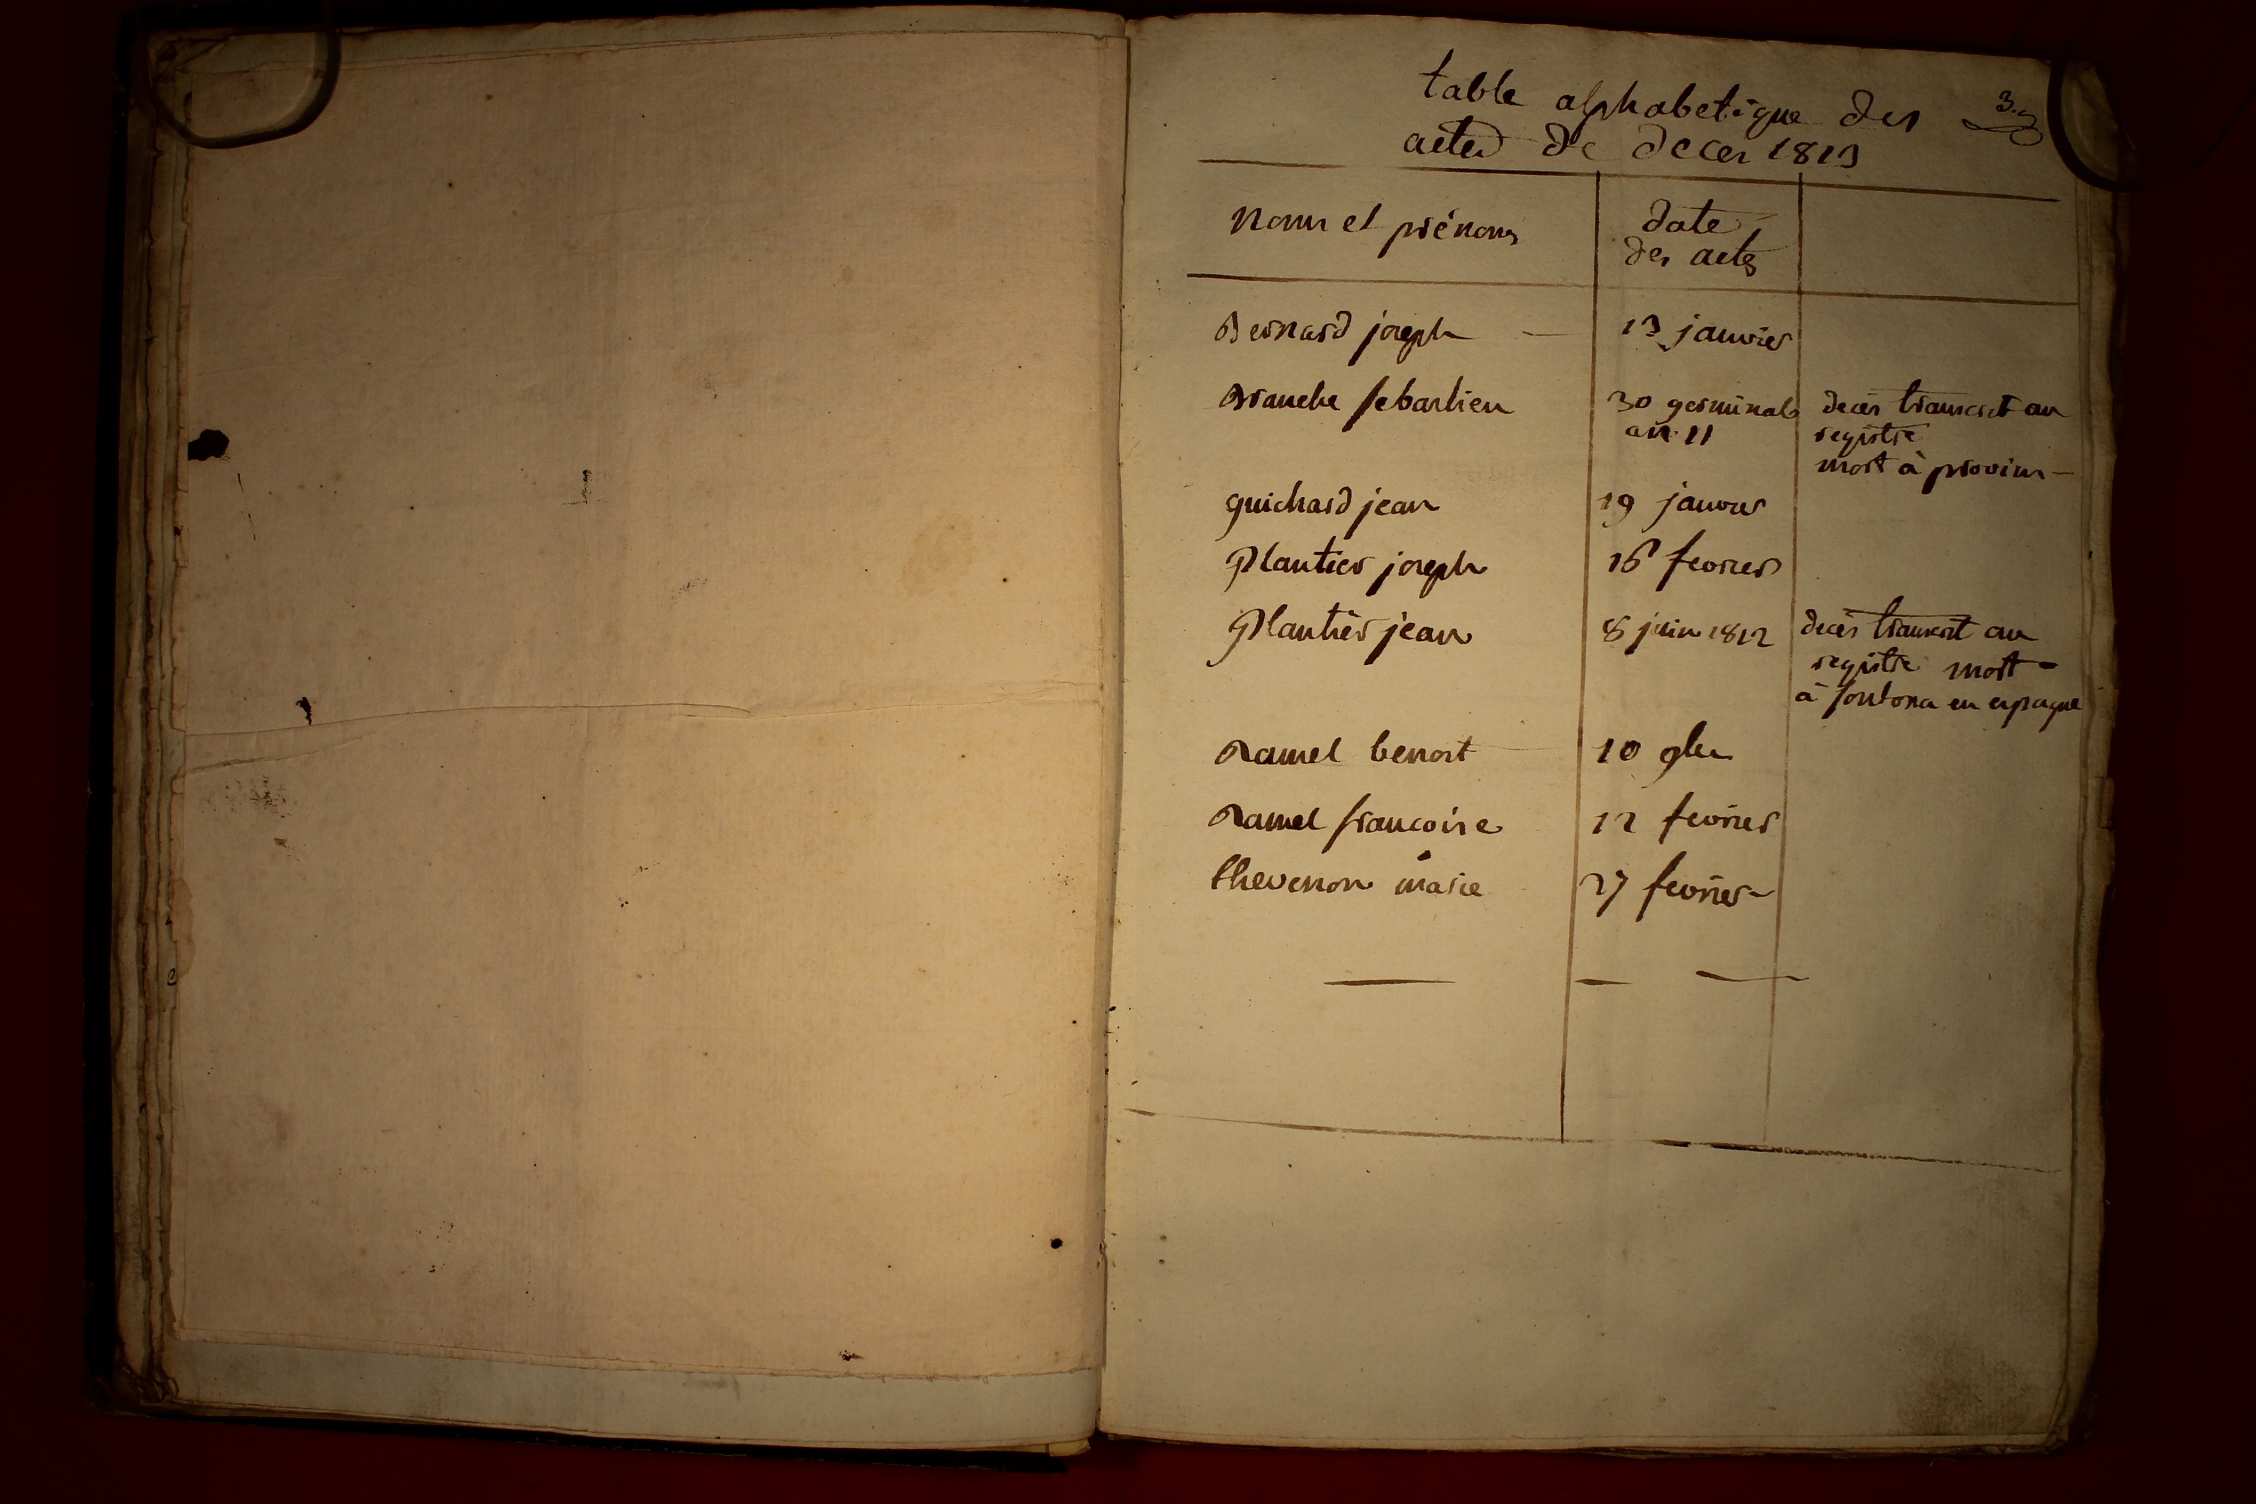 table alphabetique des
actes de deces 1813
3.
Noms et prénoms
date
des actes
Bernard joseph
13 janvier
Branche sebastien
30 germinal
an 11
decès transcrit au
registre
mort à provins
guichard jean
19 janvier
Plantier joseph
16 fevrier
Plantier jean
8 juin 1812
decès transcrit au
registre mort
à santona en espagne
Ramel benoit
10 9bre
Ramel francoise
12 fevrier
thevenon marie
27 fevrier